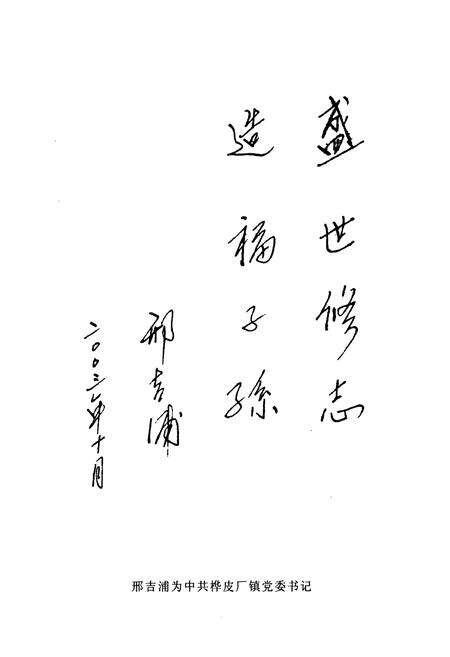 盛世修志
造福子孫
邢吉浦
二〇〇三年十月
邢吉浦为中共桦皮厂镇党委书记